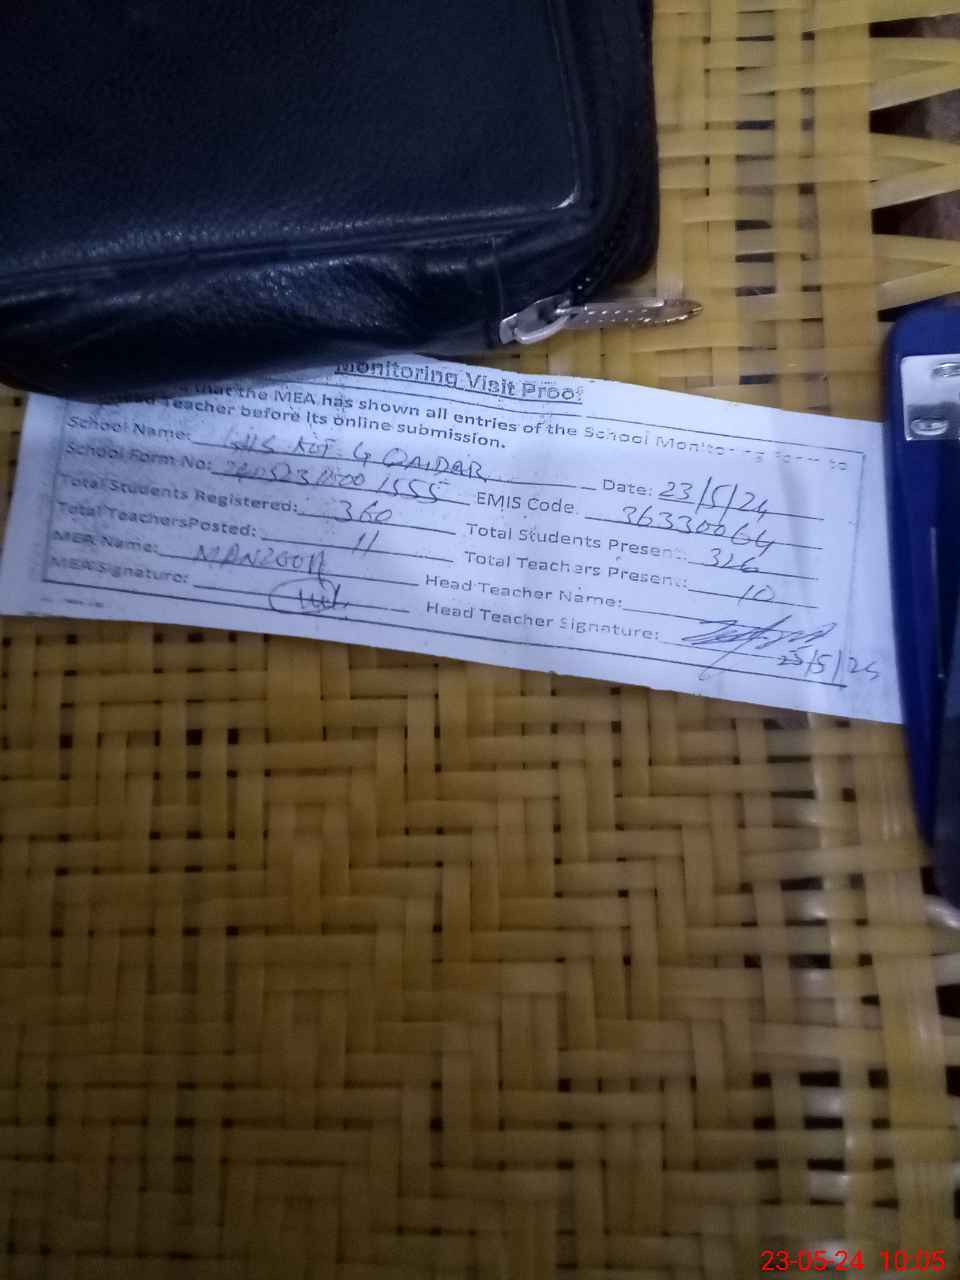 Monitoring Visit Proof
that the MEA has shown all entries of the School Monitoring Form to
Teacher before its online submission.
School Name: KOT G QAIDAR Date: 23/5/24
School Form No: EMIS Code. 36330064
Total Students Registered: 360 Total Students Present: 326
Total TeachersPosted: 11 Total Teachers Present: 10
MEA Name: MANZOOR Head Teacher Name:
MEA Signature: Head Teacher Signature:
23/5/24
23-05-24 10:05